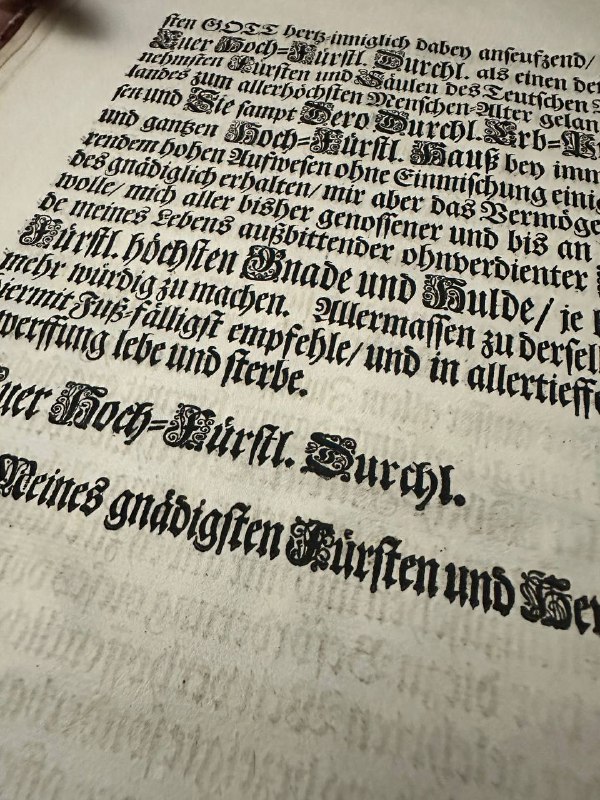 sten GOTT hertz-inniglich dabey anseufzend/
Euer Hoch-Fürstl. Durchl. als einen der
nehmsten Fürsten und Säulen des Teutschen
landes zum allerhöchsten Menschen-Alter gelan
sen und Sie sampt Dero Durchl. Erb-
und gantzen Hoch-Fürstl. Hauß bey imm
rendem hohen Aufwesen ohne Einmischung einig
des gnädiglich erhalten/ mir aber das Vermöge
wolle/ mich aller bisher genossener und bis an
de meines Lebens außbittender ohnverdienter
Fürstl. höchsten Gnade und Hulde/ je
mehr würdig zu machen. Allermassen zu dersel
iermit Fuß-fälligst empfehle/ und in allertieffe
werffung lebe und sterbe.
uer Hoch-Fürstl. Durchl.
Meines gnädigsten Fürsten und Her